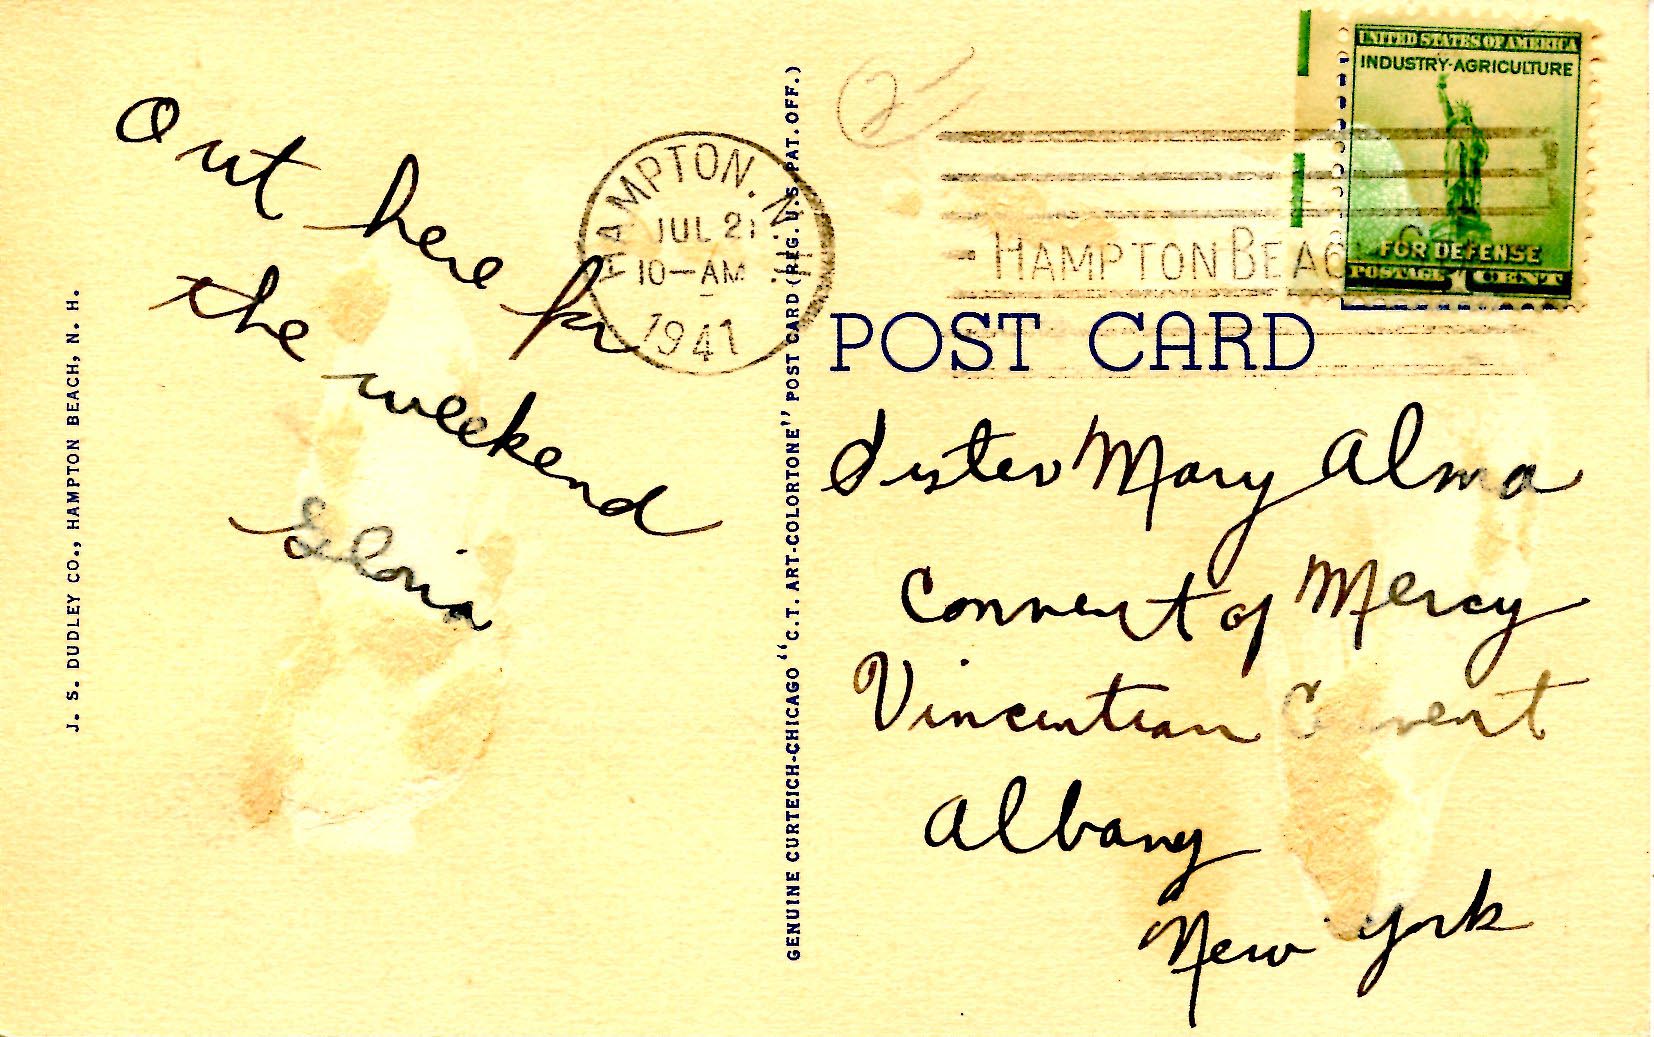 Out here for
the weekend
Gloria
J. S. DUDLEY CO., HAMPTON BEACH, N. H.
HAMPTON. N. H.
JUL 21
10-AM
1941
GENUINE CURTEICH-CHICAGO "C.T. ART-COLORTONE" POST CARD (REG. U.S. PAT. OFF.)
UNITED STATES OF AMERICA
INDUSTRY-AGRICULTURE
FOR DEFENSE
POSTAGE 1 CENT
HAMPTON BEACH
POST CARD
Sister Mary Alma
Convent of Mercy
Vincentian Convent
Albany
New York